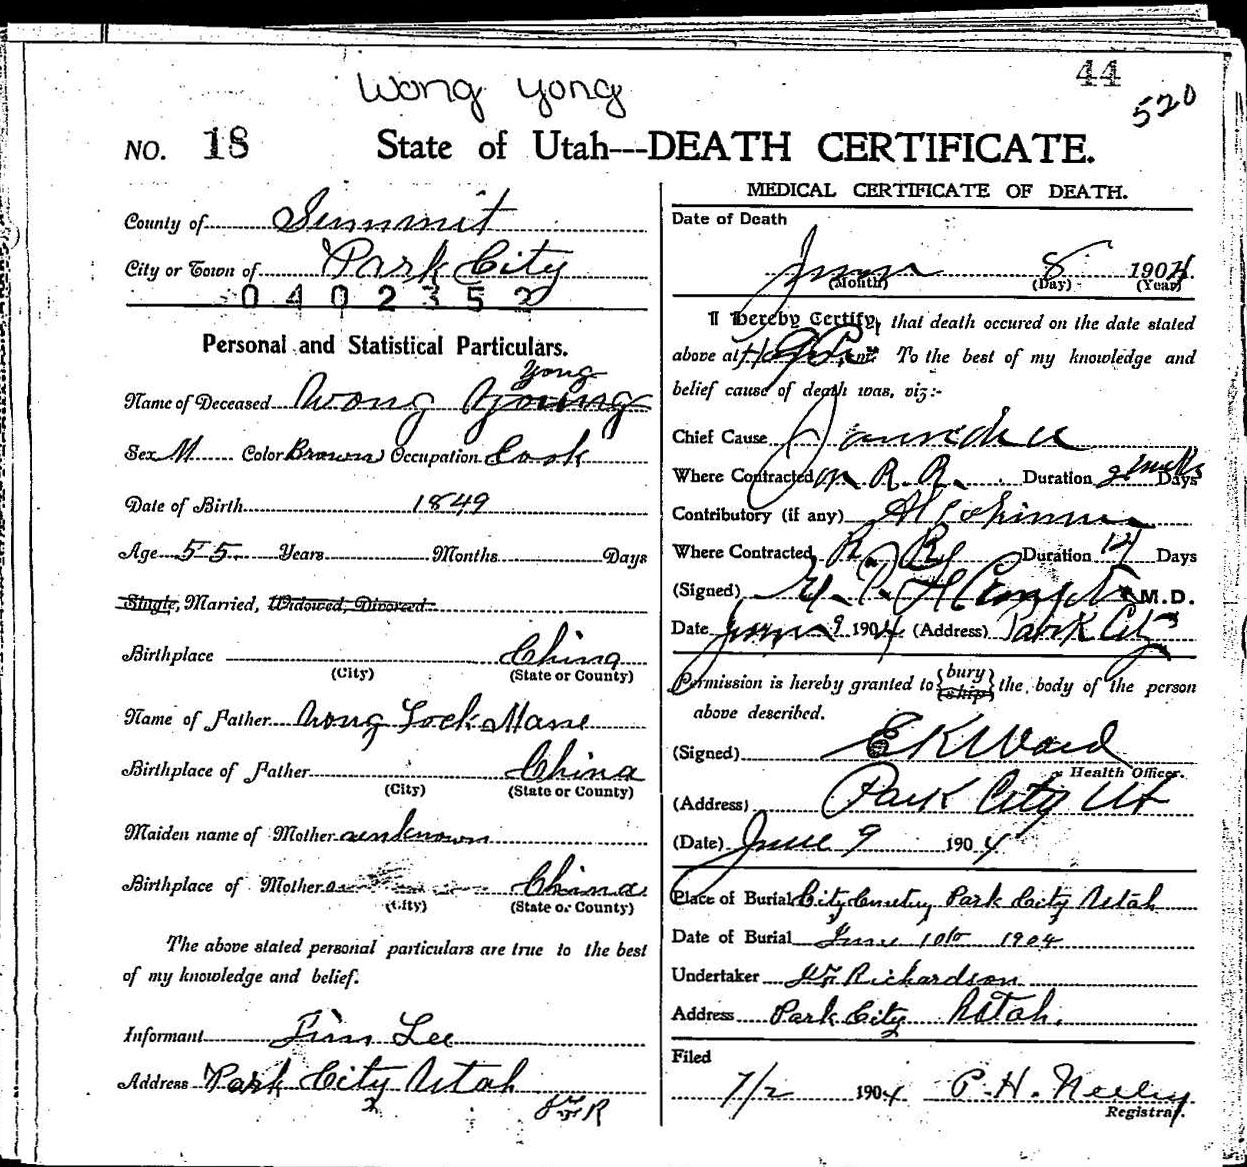 44
Wong Yong
520
NO. 18 State of Utah---DEATH CERTIFICATE.
County of Summit
City or Town of Park City
0 4 0 2 3 5 2
Personal and Statistical Particulars.
Yong
Name of Deceased Wong Young
Sex M Color Brown Occupation Cook
Date of Birth 1849
Age 55 Years Months Days
Single, Married, Widowed, Divorced
Birthplace China
(City) (State or County)
Name of Father Wong Lock Mane
Birthplace of Father China
(City) (State or County)
Maiden name of Mother unknown
Birthplace of Mother China
(City) (State or County)
The above stated personal particulars are true to the best
of my knowledge and belief.
Informant Jim Lee
Address Park City Utah
MEDICAL CERTIFICATE OF DEATH.
Date of Death
June 8 1904
(Month) (Day) (Year)
I Hereby Certify, that death occured on the date stated
above at m. To the best of my knowledge and
belief cause of death was, viz:-
Chief Cause Jaundice
Where Contracted R. R. Duration 2 Days
Contributory (if any)
Where Contracted Duration Days
(Signed) M.D.
Date June 9 1904 (Address) Park City
Permission is hereby granted to {bury
(ship)} the body of the person
above described.
(Signed) E K Ward
Health Officer.
(Address) Park City Ut
(Date) June 9 1904
Place of Burial City Cemetery Park City Utah
Date of Burial June 10th 1904
Undertaker Wm Richardson
Address Park City Utah.
Filed
7/2 1904 P. H. Neeley
Registrar.